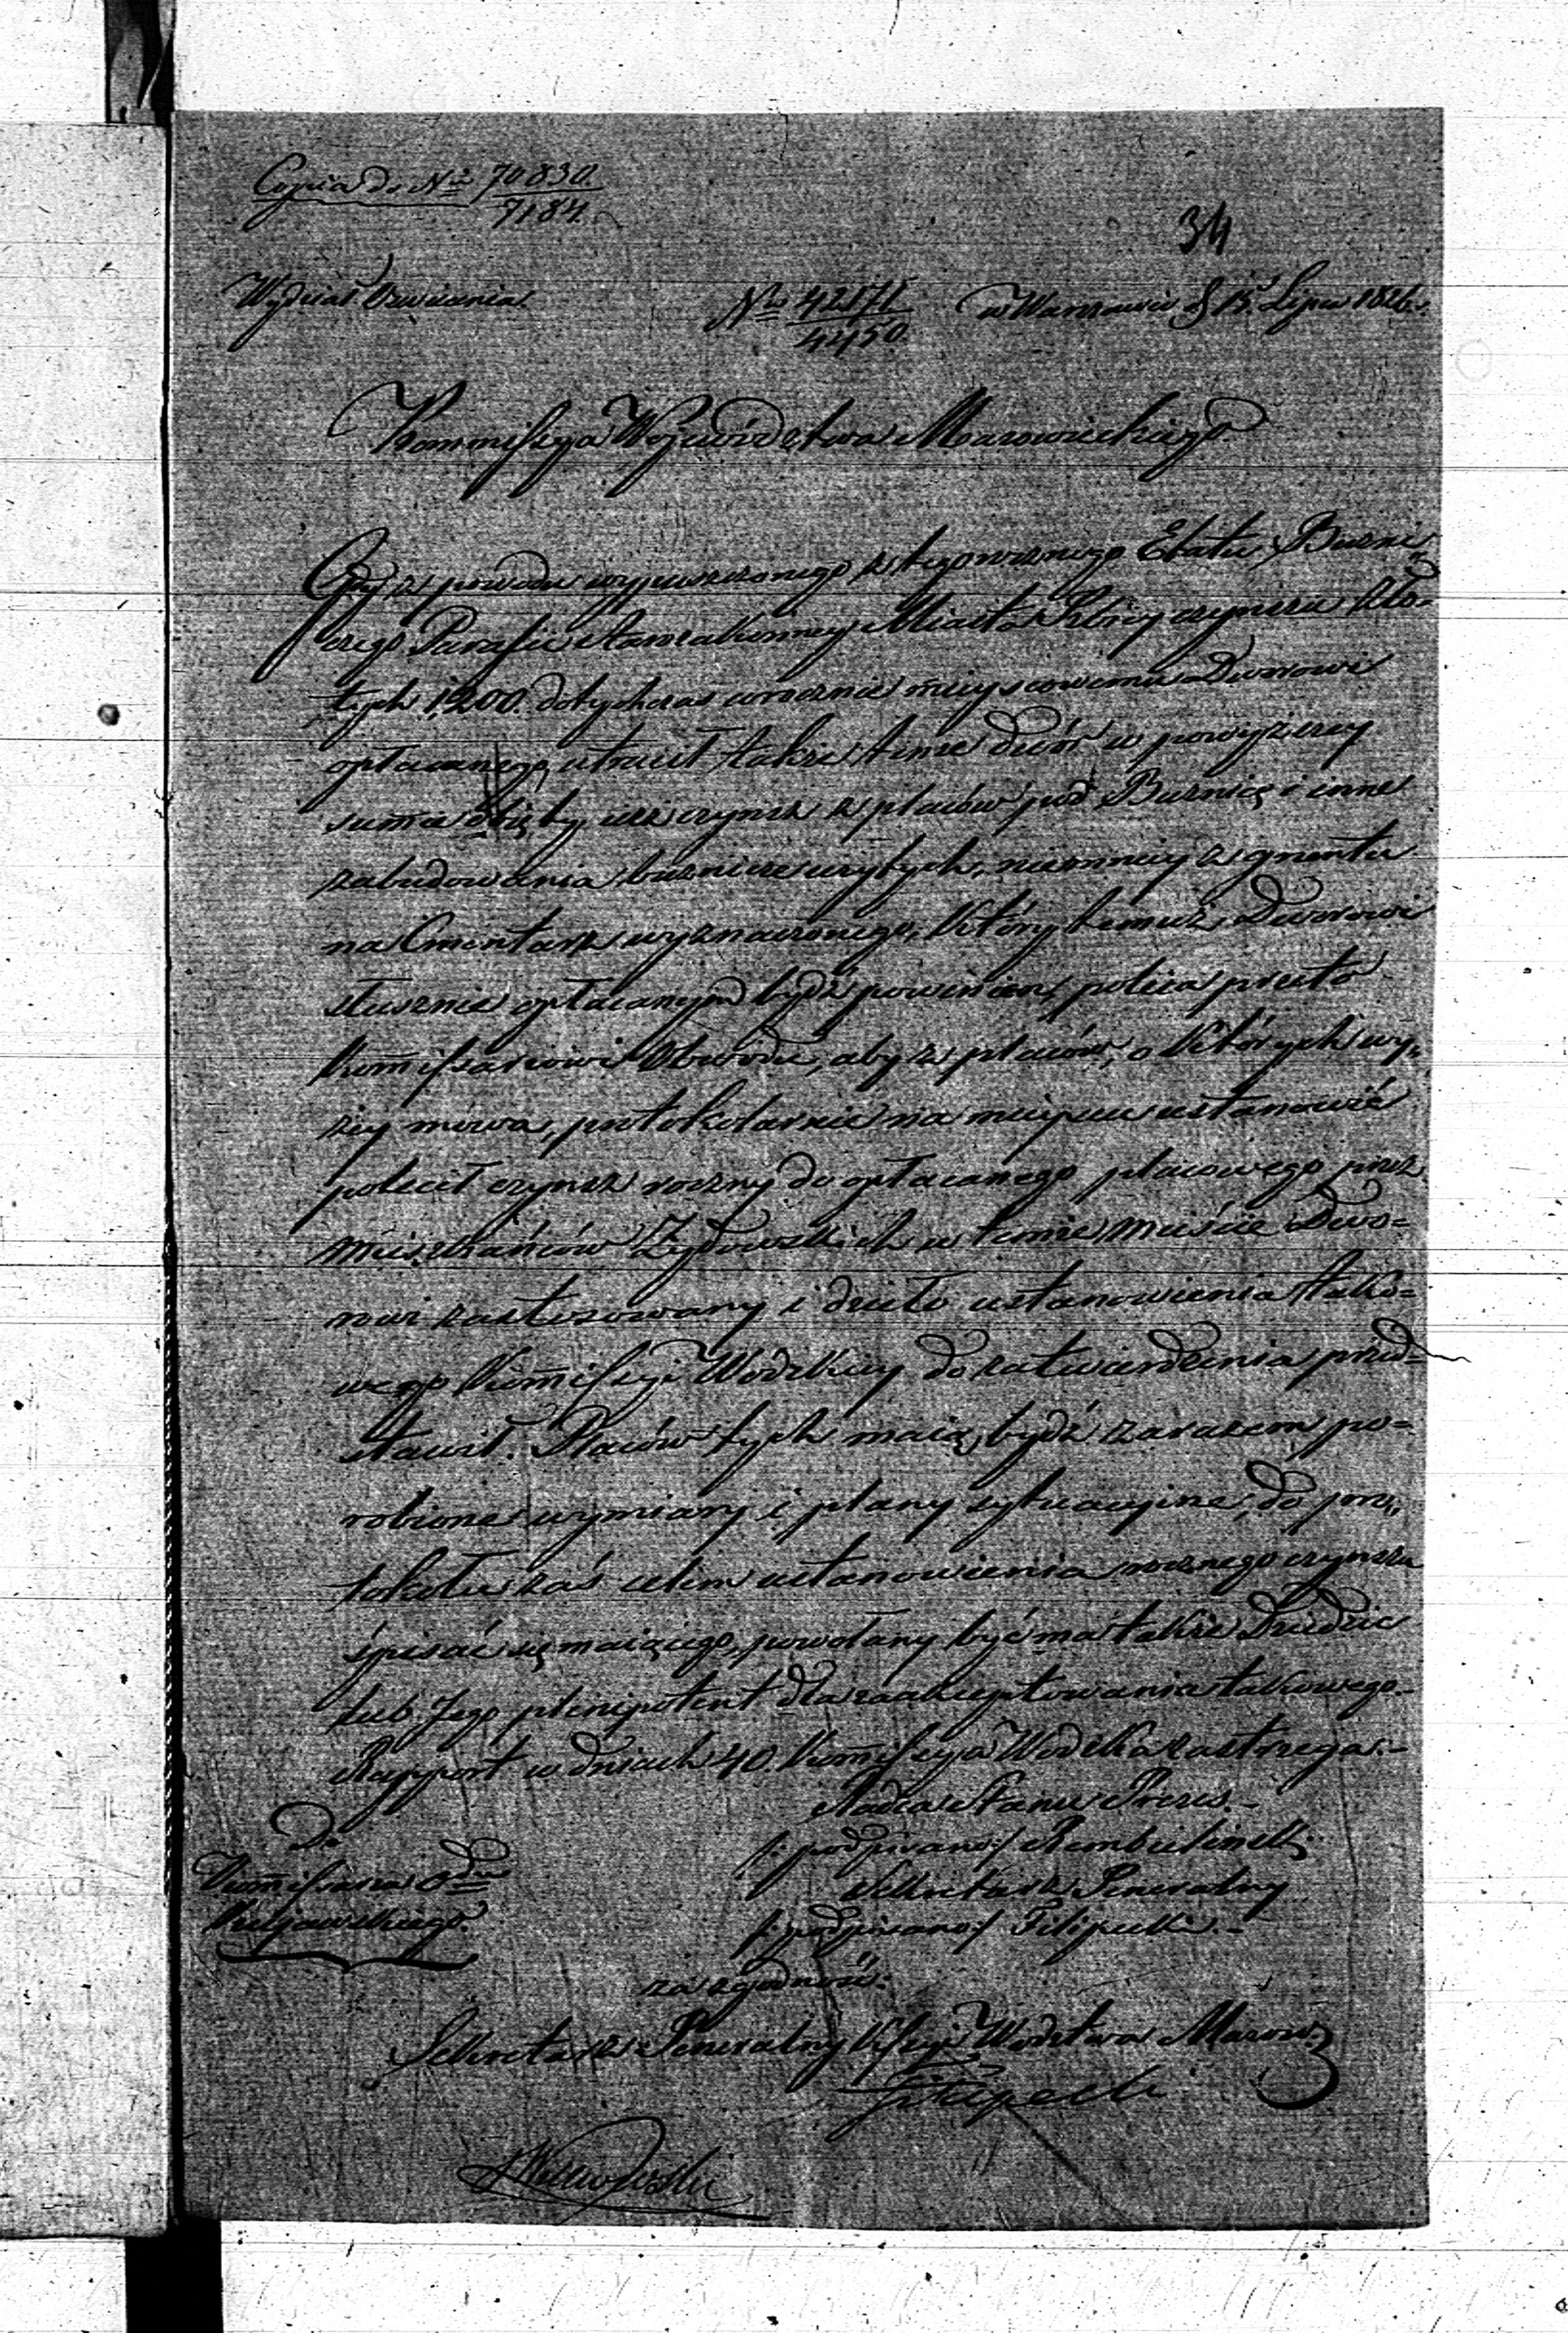 Copia do Nru 70830.
7184.
34
Wydział Oświecenia.
Nro 42171
4450.
w Warszawie d. 15. Lipca 1826.
Kommissya Województwa Mazowieckiego.
Gdy z powodu wypuszczonego z tegorocznego Etatu Bużni
czego Parafii starozakonney Miasta czynszu zło-
tych 1200. dotychczas corocznie mieyscowemu Dworowi
opłacanego, utracił także tenże dwór w powyższey
summie czynsz z placów pod Bużnicę i inne
zabudowania bużnicze użytych, niemniey z gruntu
na Cmentarz wyznaczonego, który temuż Dworowi
słusznie opłacanym bydź powinien, poleca przeto
Kommissarzowi Obwodu, aby z placów, o których wy,,
żey mowa, protokolarnie na mieyscu ustanowić
polecił czynsz roczny do opłacanego placowego przez
mieszkańców Żydowskich w temże mieście Dwo=
rowi zastosowany i dzieło ustanowienia tako=
wego Kommissyi Wódzkiey do zatwierdzenia przed=
stawił. Placów tych maią bydź zarazem po=
robione wymiary i plany sytuacyine, do pro,,
tokołu zaś celem ustanowienia rocznego czynszu
spisać się maiącego, powołany być ma także Dziedzic
lub Jego plenipotent dla zaakceptowania takowego.
Rapport w dniach 40. Kommissya Wódzka zastrzega.-
Radca Stanu Prezes.-
/: podpisano:/ Rembieliński
Sekretarz Generalny
/: podpisano:/ Filipecki.-
Do
Kommissarza Obdu
Kujawskiego.
za zgodność:
Sekretarz Generalny Kssyi Wodztwa Mazow:
Filipecki